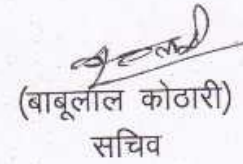 (बाबूलाल कोठारी)
सचिव